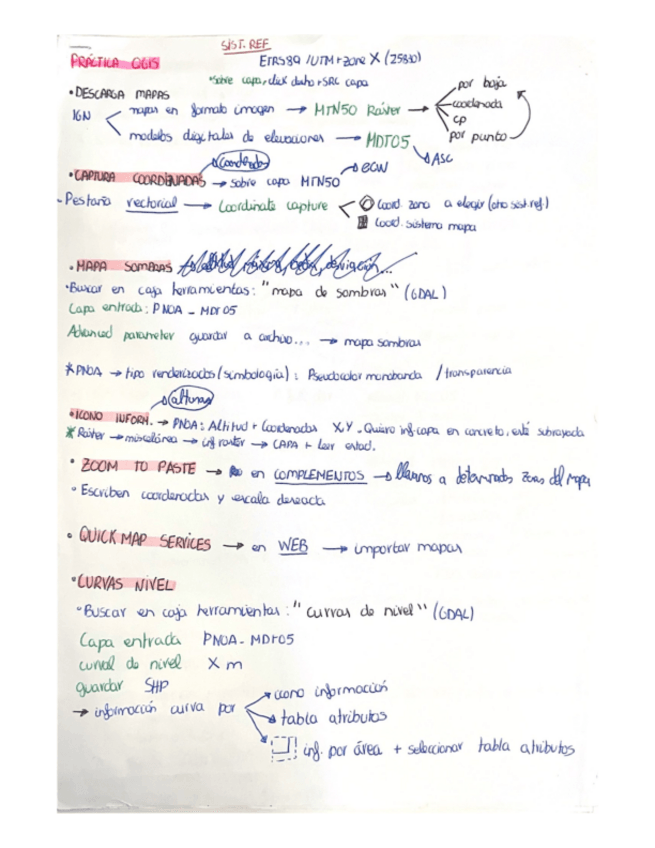 SIST. REF
PRÁCTICA QGIS ETRS89 / UTM + zone X (25830)
*sobre capa, click dcho + SRC capa
• DESCARGA MAPAS
IGN mapas en formato imagen → MTN50 Ráster → por hoja
coordenada
CP
por punto
modelos digitales de elevaciones → MDT05
ASC
Coordenadas
ECW
• CAPTURA COORDENADAS → sobre capa MTN50
- Pestaña vectorial → Coordinate capture Coord. zona a elegir (otro sist. ref.)
Coord. sistema mapa
• MAPA SOMBRAS
• Buscar en caja herramientas: "mapa de sombras" (GDAL)
Capa entrada: PNOA - MDT05
Advanced parameter guardar a archivo... → mapa sombras
* PNOA → tipo renderizados (simbología): Pseudocolor monobanda / transparencia
alturas
• ICONO INFORM. → PNOA: Altitud + Coordenadas X,Y. Quiero inf. capa en concreto, esté subrayada
* Ráster → miscelánea → inf. raster → CAPA + leer estad.
• ZOOM TO PASTE → en COMPLEMENTOS → llevarnos a determinadas zonas del mapa
• Escriben coordenadas y escala deseada
• QUICK MAP SERVICES → en WEB → importar mapas
• CURVAS NIVEL
• Buscar en caja herramientas: "curvas de nivel" (GDAL)
Capa entrada PNOA - MDT05
curval de nivel X m
guardar SHP
→ información curva por icono información
tabla atributos
inf. por área + seleccionar tabla atributos